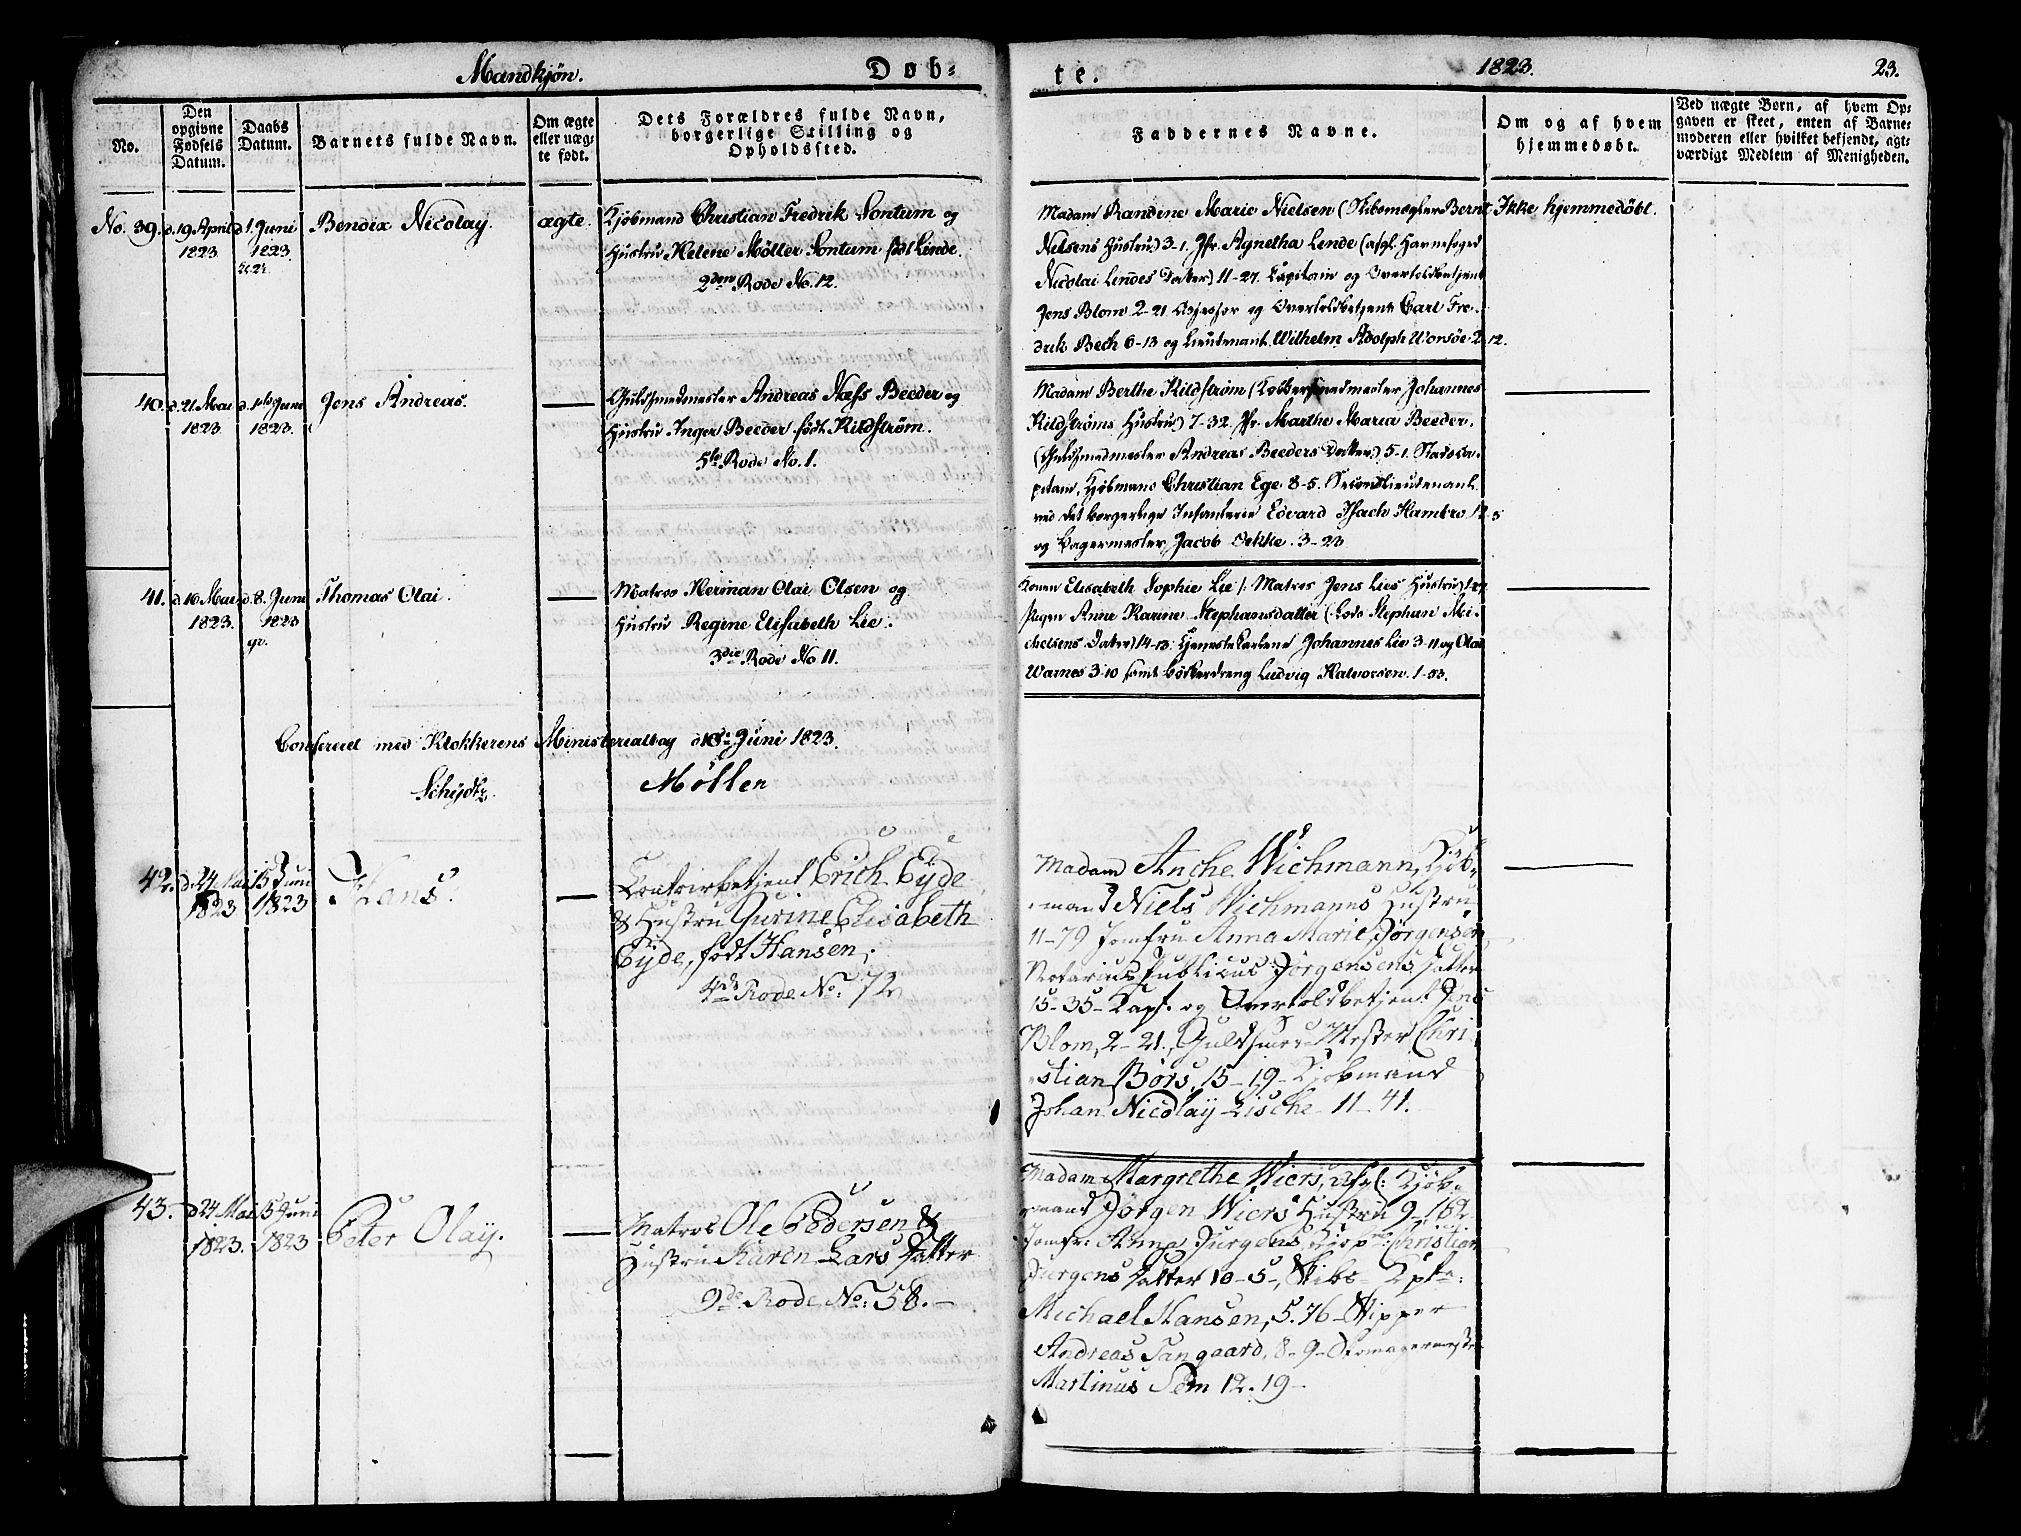 Mandkjøn.
Døb-
te.
1823.
23.
No.
Den opgivne Fødsels Datum.
Daabs Datum.
Barnets fulde Navn.
Om ægte eller uægte født.
Dets Forældres fulde Navn, borgerlige Stilling og Opholdssted.
Faddernes Navne.
Om og af hvem hjemmedøbt.
Ved uægte Børn, af hvem Opgaven er skeet, enten af Barnemoderen eller hvilket bekjendt, agtværdigt Medlem af Menigheden.
No. 39.
d. 19 April
1823
d. 1. Juni
1823
Bendix Nicolay.
ægte.
Kjøbmand Christian Fredrik Sontum og
Hustru Helene Møller Sontum født Linde.
2den Rode No. 12.
Madam Randine Marie Nielsen (Skibsmægler Bernt
Nielsens Hustru) 3-1. Jfr. Agnetha Lende (afgl. Havnefoged
Nicolai Lendes Datter) 11-27. Capitain og Overtoldbetjent
Jens Blom 2-21. Assessor og Overtoldbetjent Carl Fre-
drik Bech 6-13 og Lieutenant Wilhelm Adolph Worsöe 2-12.
Ikke hjemmedøbt.
40.
d. 21. Mai
1823
d. 1ste Juni
1823.
Jens Andreas.
Guldsmedmester Andreas Næss Beeder og
Hustru Inger Beeder født Kildstrøm.
5te Rode No. 1.
Madam Berthe Kildstrøm (Kobbersmedmester Johannes
Kildstrøms Hustru) 7-32. Jfr. Marthe Maria Beeder.
(Guldsmedmester Andreas Beeders Datter) 5-1. Stadsca-
pitain, Kjøbmand Christian Ege 8-5. Secondlieutenant
ved det borgerlige Infanterie Edvard Isach Hambro 12-5
og Bagermester Jacob Dekke. 3-23
41.
d. 16 Mai
1823.
d. 8. Juni
1823
Thomas Olai.
Matros Herman Olai Olsen og
Hustru Regine Elisabeth Lie.
3die Rode No 11.
Konen Elisabeth Sophie Lie (: Matros Jens Lies Hustru)
Pigen Anne Karine Stephansdatter (Lods Stephan Mi-
chelsens Datter) 14-13. Tjenestekarlene Johannes Lie 3-11 og Olai
Warnes 3-10 samt Bødkerdreng Ludvig Halvorsen. 1-53.
Confereret med Klokkerens Ministerialbog d. Juni 1823.
Schydtz.
Møller
42.
d 24 Mai
1823
15 Juni
1823
Hans.
Contoirbetjent Erich Eyde
& Hustru Gurine Elisabeth
Eyde, født Hansen,
4de Rode No: 72
Madam Anche Wichmann, Kjöb-
mand Niels Wichmanns Hustru
11-79 Jomfru Anna Marie Jörgensen,
Notarius Publicus Jörgensens Datter
15-35- Capt. og Overtoldbetjent Jens
Blom, 2-21, Guldsmed Mester Chri
stian Börs, 15-19- Kjöbmand
Johan Nicolay Lische 11-41.
43.
d 24 Mai
1823.
15 Juni
1823
Peter Olay.
Matros Ole Pedersen &
Hustru Karen Lars Datter
9de Rode No: 58.-
Madam Margrethe Wiers, Kjöb-
mand Jörgen Wiers Hustru 9-162
Jomfr: Anna Jurgens, Christian
Jurgens Datter 10-5-, Skibs- Cpt:
Michael Hansen, 5.76- Skipper
Andreas Tangaard, 8-9- Skomagermester
Martinus Sem 12.19-